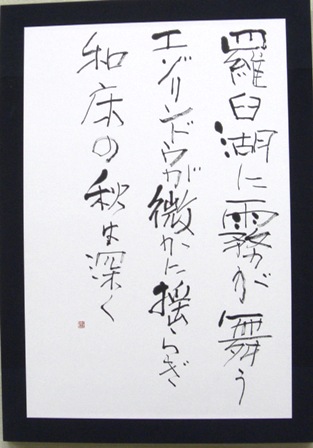 羅臼湖に霧が舞う
エゾリンドウが微かに揺らぎ
知床の秋は深く